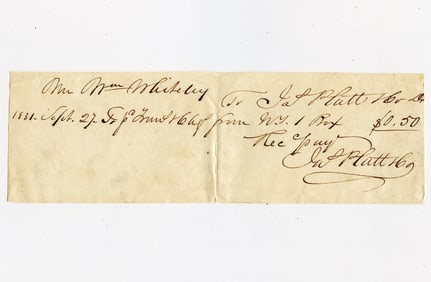 Wm Whiteley
To Jas Platt & Co Dr
1831. Sept. 27 To from N.Y. 1 Box $0.50
Rec pay
Jas Platt & Co